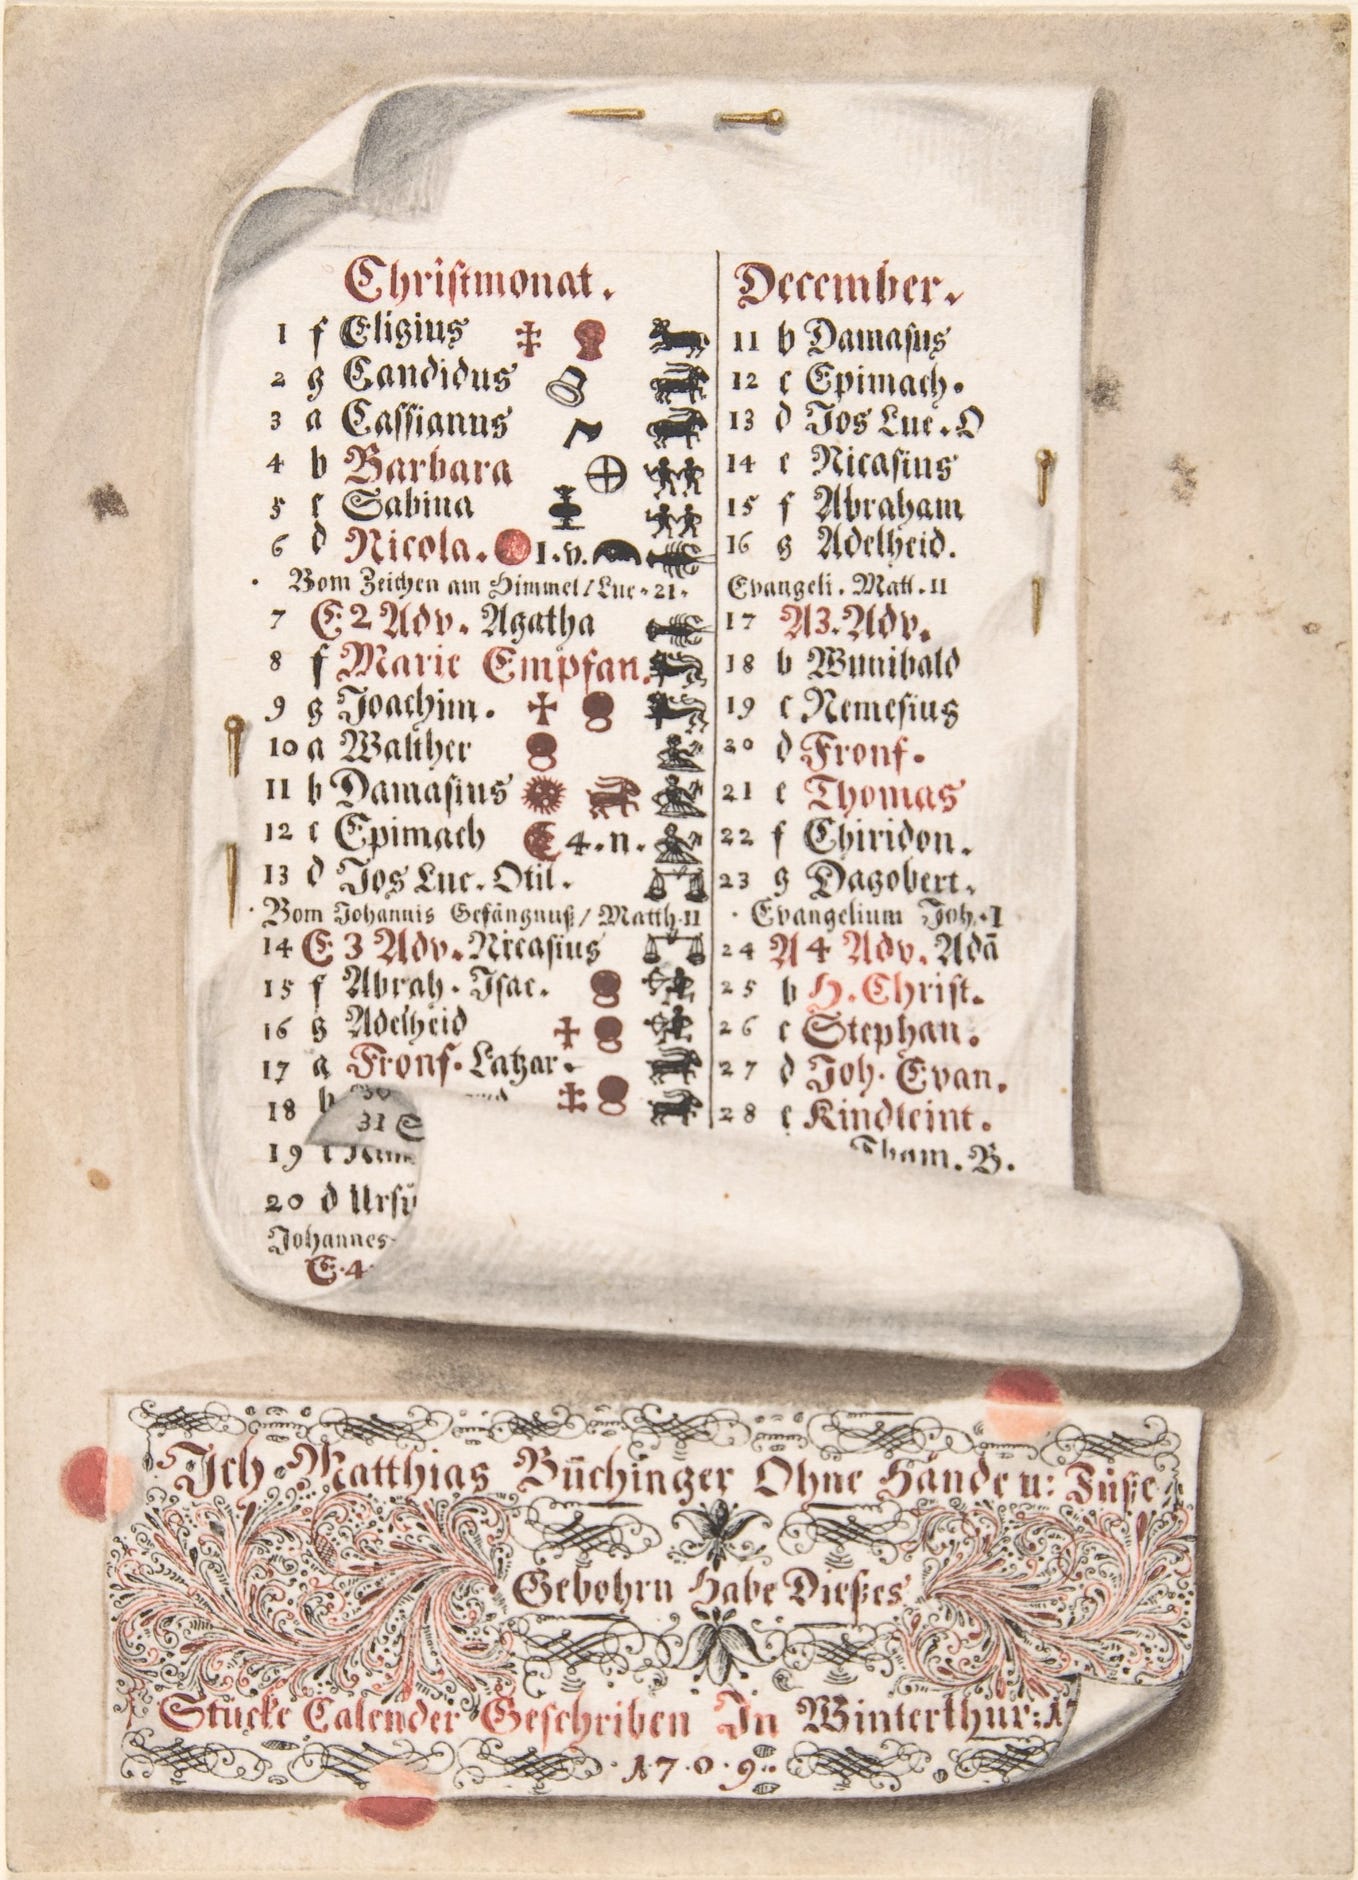 Christmonat.
1 f Eligius
2 g Candidus
3 a Cassianus
4 b Barbara
5 c Sabina
6 d Nicola. 1.v.
Vom Zeichen am Himmel/Luc.21.
7 E 2 Adv. Agatha
8 f Marie Empfan.
9 g Joachim.
10 a Walther
11 b Damasius
12 c Epimach 4.n.
13 d Jos Luc. Otil.
Vom Johannis Gefängnuß/Matth.11
14 E 3 Adv. Nicasius
15 f Abrah. Isac.
16 g Adelheid
17 a Fronf. Latzar.
18 b
31 S
19 c
20 d Ursi
Johannes
E.4.
December.
11 b Damasus
12 c Epimach.
13 d Jos Luc. O
14 e Nicasius
15 f Abraham
16 g Adelheid.
Evangeli. Matt. 11
17 A3. Adv.
18 b Wunibald
19 c Nemesius
20 d Fronf.
21 e Thomas
22 f Chiridon.
23 g Dagobert.
Evangelium Joh. 1
24 A 4 Adv. Adā
25 b H. Christ.
26 c Stephan.
27 d Joh. Evan.
28 e Kindleint.
Tham. B.
Ich Matthias Büchinger Ohne Hände u: Füße
Gebohrn Habe Dießes
Stucke Calender Geschriben In Winterthur: 17
1709